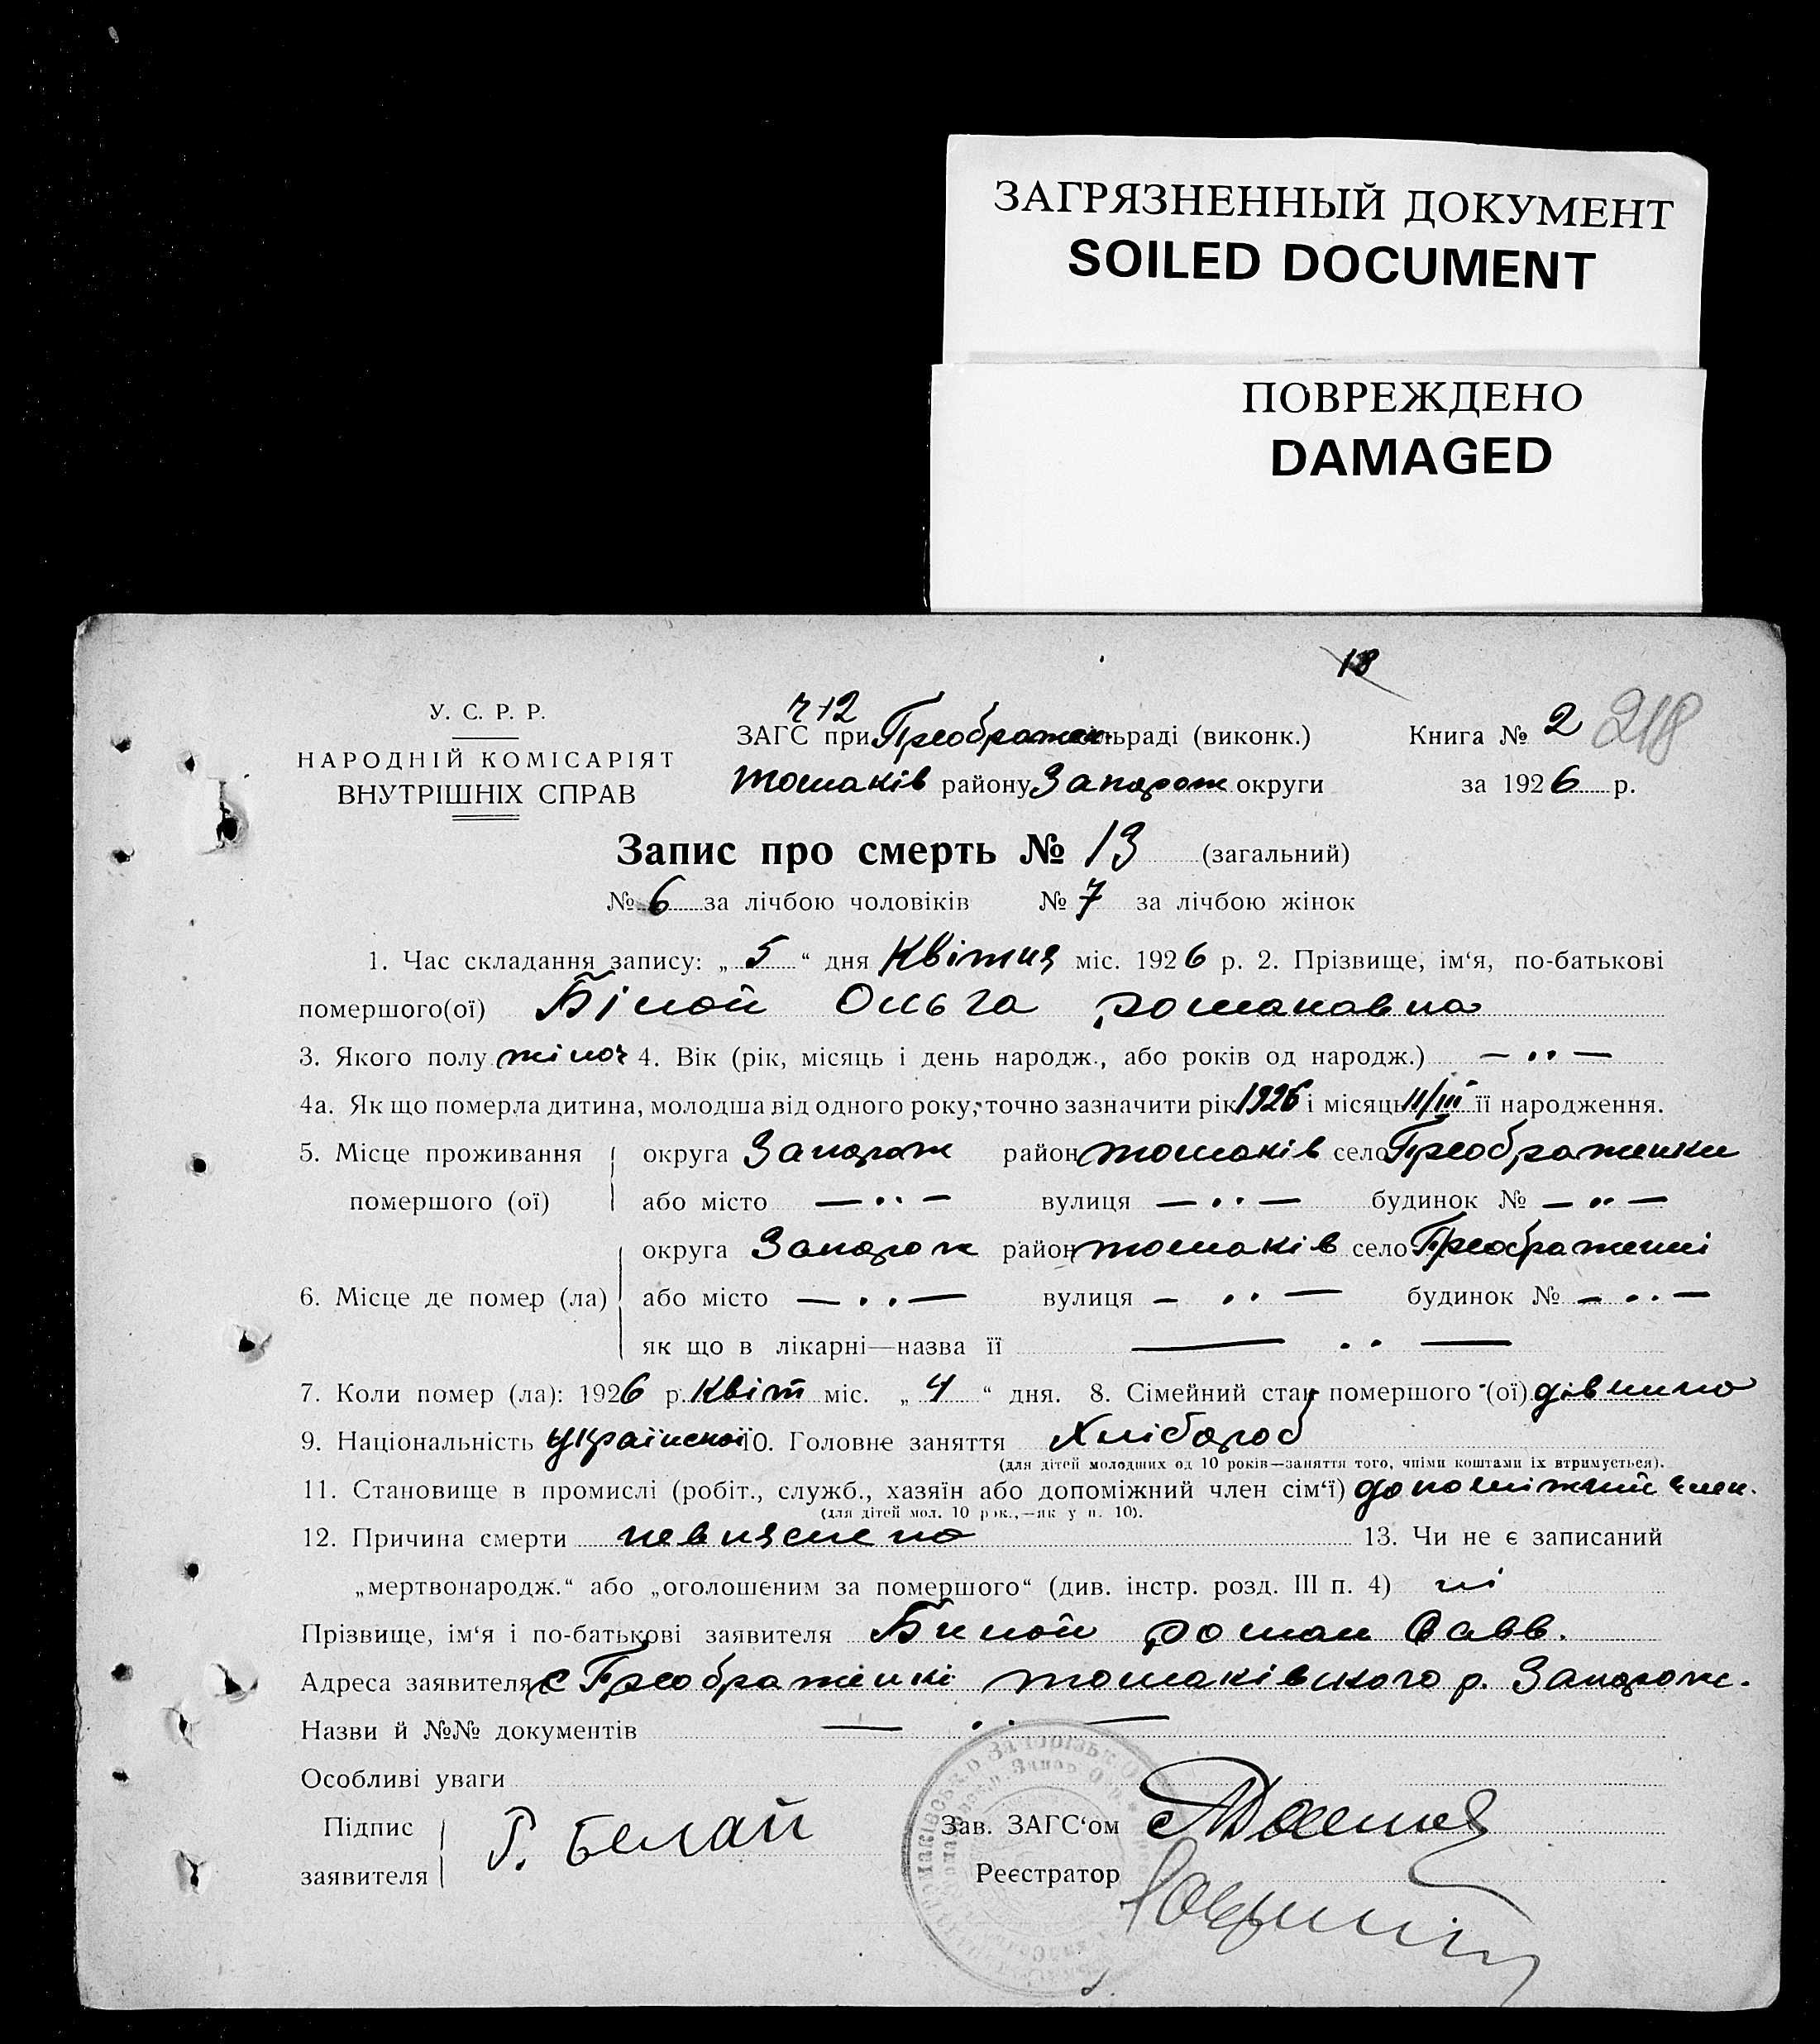 ЗАГРЯЗНЕННЫЙ ДОКУМЕНТ
SOILED DOCUMENT
ПОВРЕЖДЕНО
DAMAGED
18
У. С. Р. Р.
НАРОДНІЙ КОМІСАРІЯТ
ВНУТРІШНІХ СПРАВ
ч 12
ЗАГС при Преображен сільраді (виконк.)
Томаків району Запорож округи
Книга № 2 218
за 1926 р.
Запис про смерть № 13 (загальний)
№ 6 за лічбою чоловіків № 7 за лічбою жінок
1. Час складання запису: „ 5 “ дня Квітня міс. 1926 р. 2. Прізвище, ім‘я, по-батькові
помершого(ої) Білой Ольга Романавна
3. Якого полу жіноч 4. Вік (рік, місяць і день народж., або років од народж.) — ·· —
4а. Як що померла дитина, молодша від одного року, точно зазначити рік 1926 і місяць 11/III її народження.
5. Місце проживання помершого (ої) округа Запорож район Томаків село Преображенки
або місто — ·· — вулиця — ·· — будинок № — ·· —
6. Місце де помер (ла) округа Запорож район Томаків село Преображенці
або місто — ·· — вулиця — ·· — будинок № — ·· —
як що в лікарні—назва її — ·· —
7. Коли помер (ла): 1926 р. Квіт міс. „ 4 “ дня. 8. Сімейний стан помершого (ої) дівчина
9. Національність Українскої 10. Головне заняття Хлібороб
(для дітей молодших од 10 років—заняття того, чиїми коштами їх втримується).
11. Становище в промислі (робіт., служб., хазяїн або допоміжний член сім‘ї) допоміжний член.
(для дітей мол. 10 рок.,—як у п. 10).
12. Причина смерти невияснено 13. Чи не є записаний
„мертвонародж.“ або „оголошеним за помершого“ (див. інстр. розд. III п. 4) ні
Прізвище, ім‘я і по-батькові заявителя Билой Роман Савв.
Адреса заявителя с Преображінкі Томаківского р. Запорож.
Назви й №№ документів — ·· —
Особливі уваги
Підпис заявителя Р. Белай
Зав. ЗАГС‘ом
Реєстратор